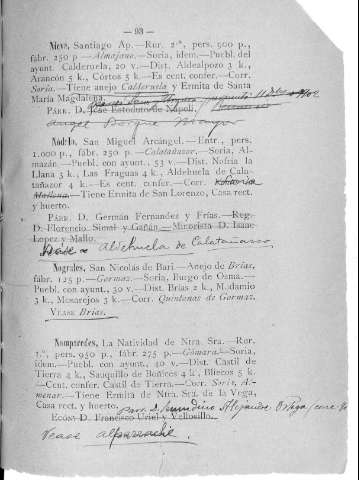 — 93 —
Nieva, Santiago Ap.—Rur. 2.ª, pers. 900 p.,
fábr. 250 p—Almajano.—Soria, idem.—Puebl. del
ayunt. Calderuela, 20 v.—Dist. Aldealpozo 3 k.,
Arancón 5 k., Cortos 3 k.—Es cent. confer.—Corr.
Soria.—Tiene anejo Calderuela y Ermita de Santa
María Magdalena.
Párr. D. José Estotudo de Nápoli,
Angel
Nódalo, San Miguel Arcángel.—Entr., pers.
1.000 p., fábr. 250 p.—Calatañazor.—Soria, Al-
mazán.—Puebl. con ayunt., 53 v.—Dist. Nafría la
Llana 3 k., Las Fraguas 4 k., Aldehuela de Cala-
tañazor 4 k.—Es cent. confer.—Corr.
Tiene Ermita de San Lorenzo, Casa rect.
y huerto.
Párr. D. German Fernandez y Frías.—Reg.
D. Florencio Simal y Gañán.—Minorista D. Isaac
Lopez y Mallo.
Véase - Aldehuela de Calatañazor
Nograles, San Nicolás de Bari—Anejo de Brías,
fábr. 125 p—Gormaz.—Soria, Burgo de Osma.—
Puebl. con ayunt., 30 v.—Dist. Brías 2 k., Modamio
3 k., Mosarejos 3 k.—Corr. Quintanas de Gormaz.
Véase Brías.
Nomparedes, La Natividad de Ntra. Sra.—Rur.
1.ª, pers. 950 p., fábr. 275 p.—Gómara.—Soria,
idem.—Puebl. con ayunt., 40 v.—Dist. Castil de
Tierra 4 k., Sauquillo de Boñices 4 k, Bliecos 5 k.
—Cent. confer. Castil de Tierra.—Corr. Soria, Al-
menar.—Tiene Ermita de Ntra. Sra. de la Vega,
Casa rect. y huerto.
Parr. D. Secundino Alejandre Ortega
Ecón. D. Francisco Uriel y Vellosillo.
Véase alparrache.